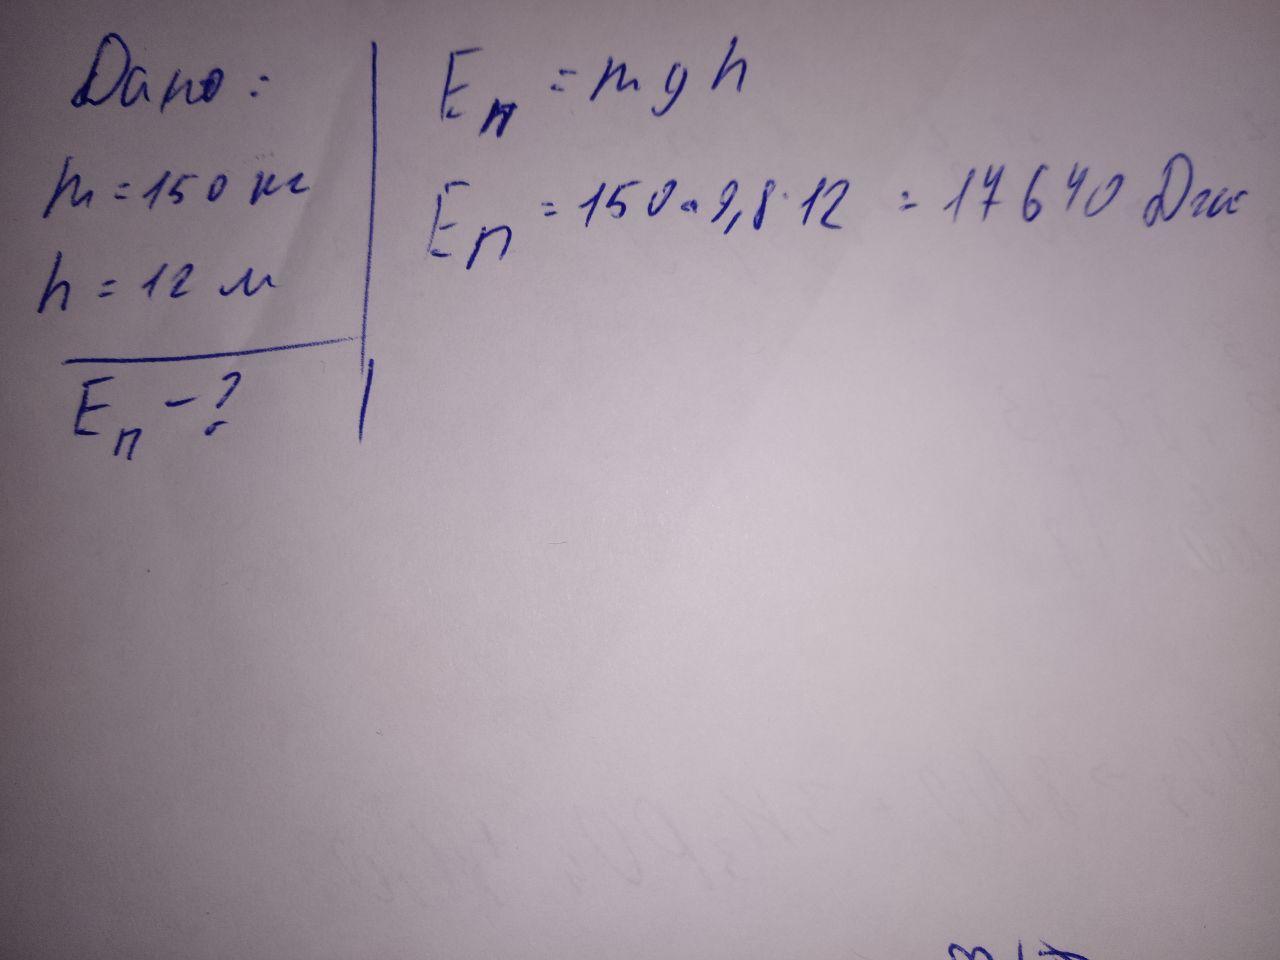 Дано:
m = 150 кг
h = 12 м
Eп - ?
Eп = mgh
Eп = 150 · 9,8 · 12 = 17640 Дж